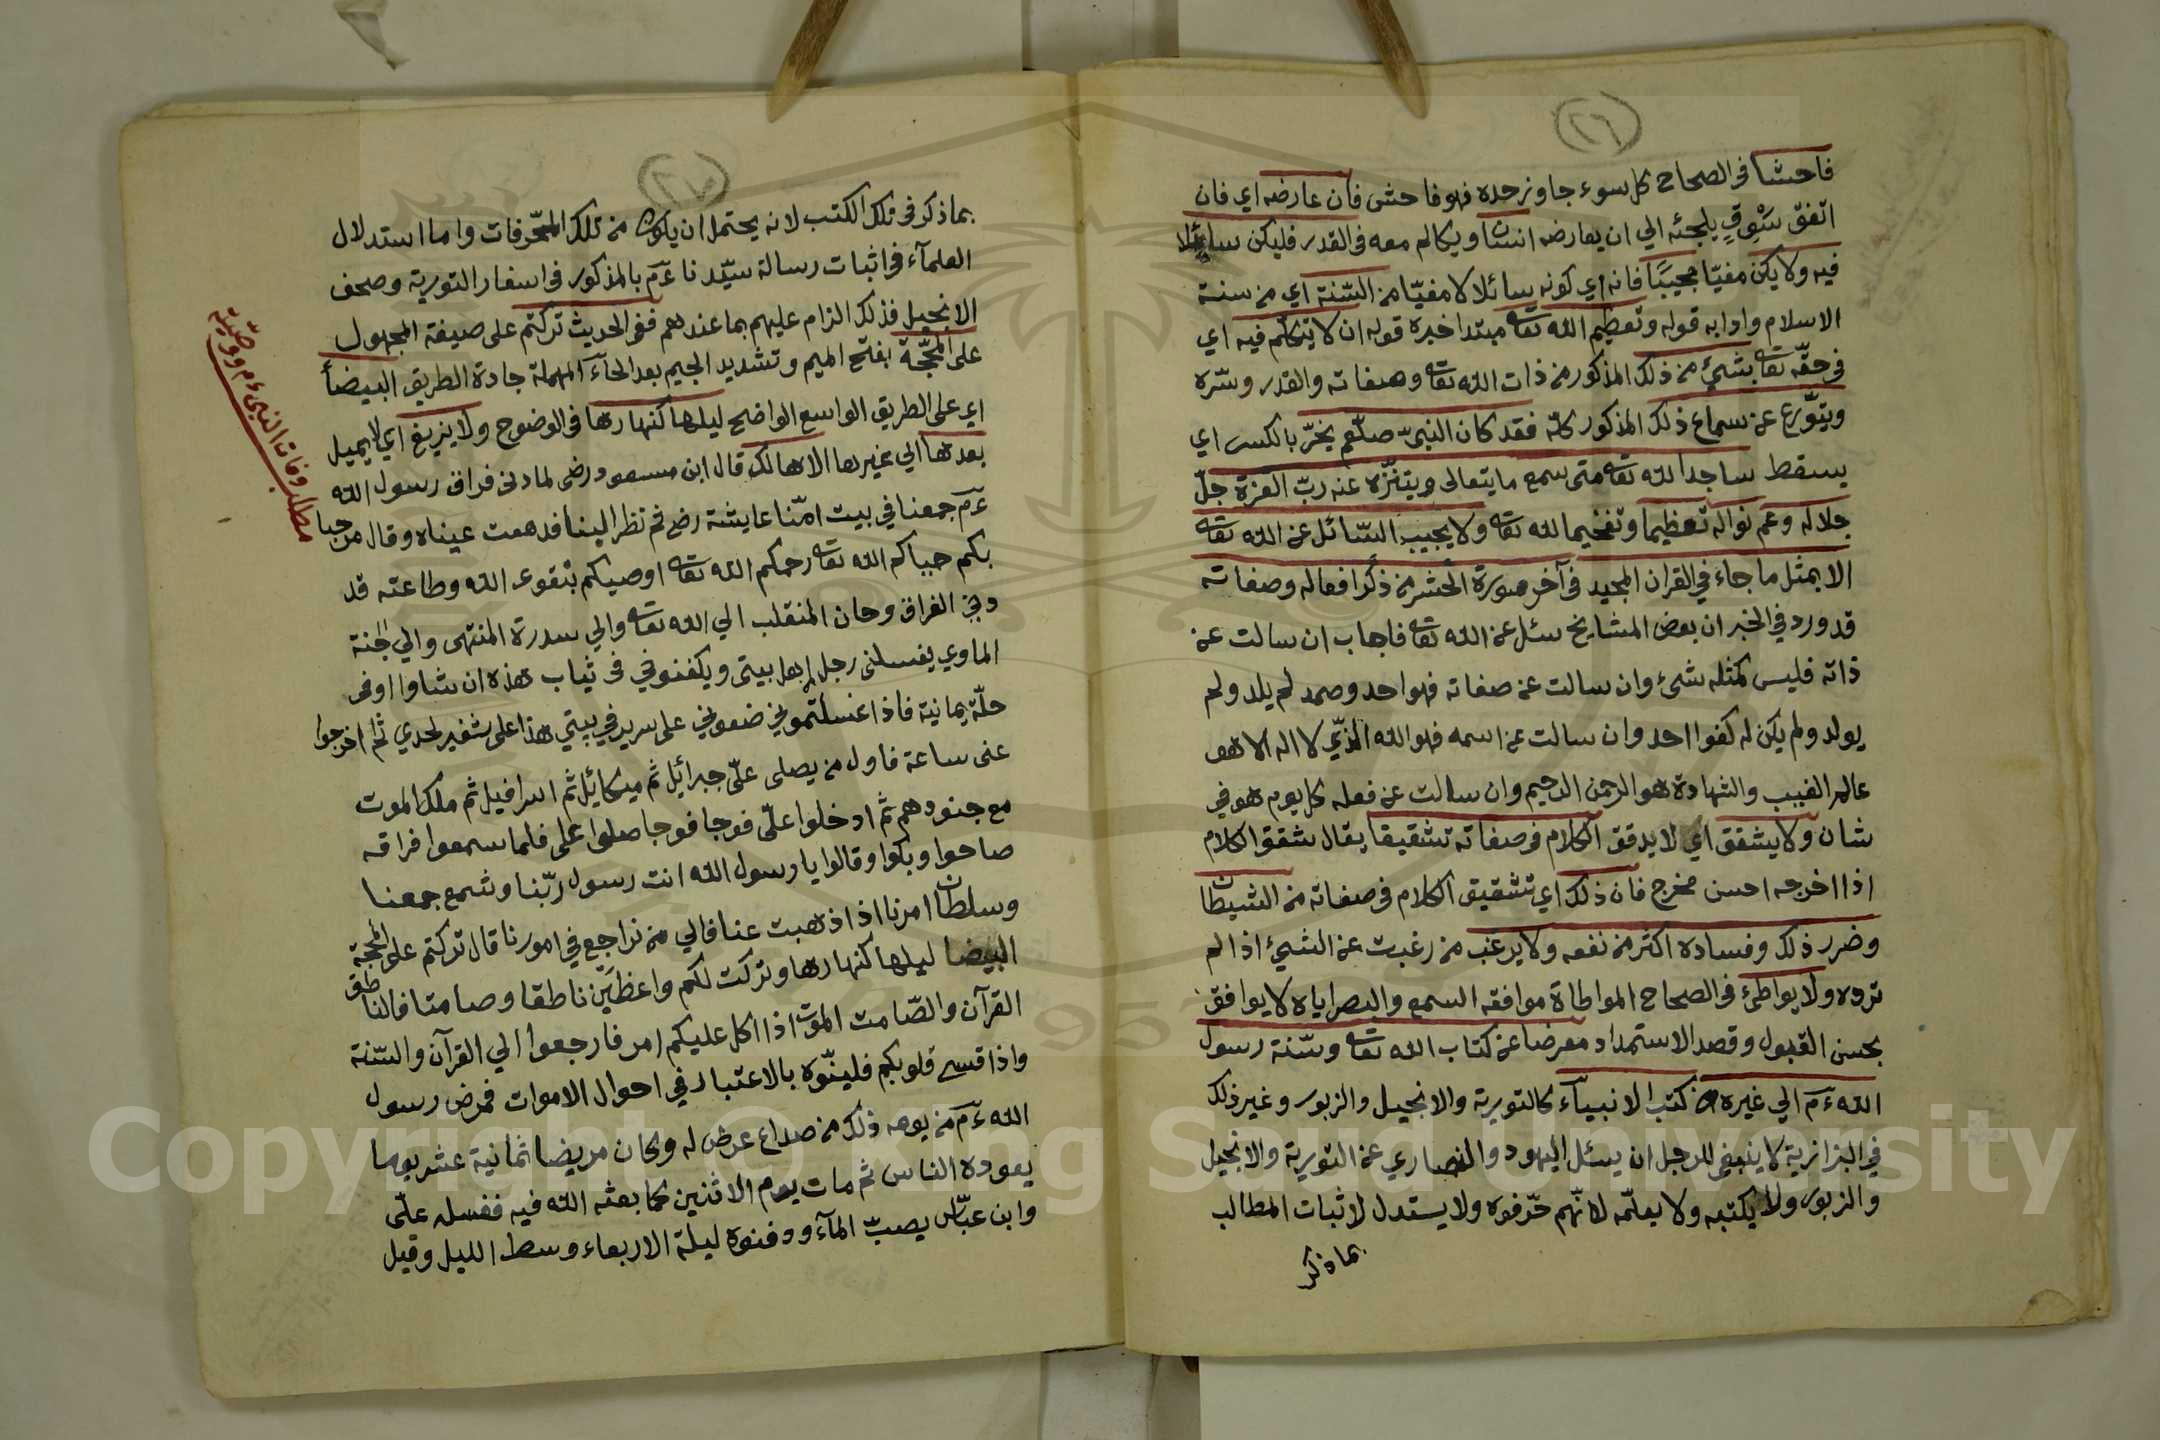 (٢٦)
فاحشا في الصحاح كل سوء جاوز حده فهو فاحش فان عارضه اي فان
اتفق سوقي يلجئه الي ان يعارضه انسان ويكالم معه في القدر فليكن سائلا
فيه ولا يكن مفتيا مجيبا فانه اي كونه سائلا لا مفتيا من السنة اي من سنة
الاسلام وادابه قوله وتعظيم الله تعا مبتدا خبره قوله ان لا يتكلم فيه اي
في حقه تعا بشئ من ذلك المذكور من ذات الله تعا وصفاته والقدر وسره
ويتورع عن سماع ذلك المذكور كله فقد كان النبي صلعم يخر بالكسر اي
يسقط ساجدا لله تعا متى سمع ما يتعالى ويتنزه عنه رب العزة جل
جلاله وعم نواله تعظيما وتفخيما لله تعا ولا يجيب السائل عن الله تعا
الا بمثل ما جاء في القران المجيد في آخر سورة الحشر من ذكر افعاله وصفاته
قد ورد في الخبر ان بعض المشايخ سئل عن الله تعا فاجاب ان سالت عن
ذاته فليس كمثله شئ وان سالت عن صفاته فهو احد وصمد لم يلد ولم
يولد ولم يكن له كفوا احد وان سالت عن اسمه فهو الله الذي لا اله الا هو
عالم الغيب والشهادة هو الرحمن الرحيم وان سالت عن فعله كل يوم هو في
شان ولا يشقق اي لا يدقق الكلام في صفاته تشقيقا يقال شقق الكلام
اذا اخرجه احسن مخرج فان ذلك اي تشقيق الكلام في صفاته من الشيطان
وضرر ذلك وفساده اكثر من نفعه ولا يرغب من رغبت عن الشيء اذا لم
ترده ولا يواطئ في الصحاح المواطاة موافقه السمع والبصر اياه لا يوافق
بحسن القبول وقصد الاستمداد معرضا عن كتاب الله تعا وسنة رسول
الله عم الي غيره من كتب الانبيآء كالتورية والانجيل والزبور وغير ذلك
في البزازية لا ينبغي للرجل ان يسئل اليهود والنصاري عن التورية والانجيل
والزبور ولا يكتبه ولا يعلمه لانهم حرفوه ولا يستدل لاثبات المطالب
بما ذكر
(٢٧)
بما ذكر في تلك الكتب لانه يحتمل ان يكون من تلك المحرفات واما استدلال
العلمآء في اثبات رسالة سيدنا عم بالمذكور في اسفار التورية وصحف
الانجيل فذلك الزام عليهم بما عندهم ففي الحديث تركتم على صيغة المجهول
على المحجة بفتح الميم وتشديد الجيم بعد الحآء المهملة جادة الطريق البيضأ
اي على الطريق الواسع الواضح ليلها كنهارها في الوضوح ولا يزيغ اي لا يميل
بعدها الي غيرها الا هالك قال ابن مسعود رضي لما دنى فراق رسول الله
عم جمعنا في بيت امنا عايشة رضع ثم نظر الينا فدمعت عيناه وقال مرحبا
بكم حياكم الله تعا رحمكم الله تعا اوصيكم بتقوى الله وطاعته قد
دني الفراق وحان المنقلب الي الله تعا والي سدرة المنتهى والي جنة
الماوي يغسلني رجل اهل بيتي ويكفنوني في ثياب هذه ان شاوا او في
حلة يمانية فاذا غسلتموني ضعوني على سرير في بيتي هذا على شفير لحدي ثم اخرجوا
عنى ساعة فاول من يصلى علي جبرائيل ثم ميكائيل ثم اسرافيل ثم ملك الموت
مع جنودهم ثم ادخلوا علي فوجا فوجا صلوا علي فلما سمعوا فراقه
صاحوا وبكوا وقالوا يا رسول الله انت رسول ربنا وشمع جمعنا
وسلطان امرنا اذا ذهبت عنا فالي من نراجع في امورنا قال تركتم على المحجة
البيضا ليلها كنهارها وتركت لكم واعظين ناطقا وصامتا فالناطق
القرآن والصامت الموت اذا اكل عليكم امر فارجعوا الي القرآن والسنة
واذا قسي قلوبكم فلينوه بالاعتبار في احوال الاموات فمرض رسول
الله عم من يومه ذلك من صداع عرض له وكان مريضا ثمانية عشر يوما
يعوده الناس ثم مات يوم الاثنين كما بعثه الله فيه فغسله علي
وابن عباس يصب المآء ودفنوه ليلة الاربعاء وسط الليل وقيل
مطلب وفات النبي عم ووصية
Copyright © King Saud University